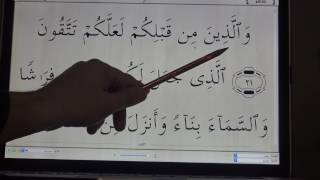 وَٱلَّذِينَ مِن قَبْلِكُمْ لَعَلَّكُمْ تَتَّقُونَ
٢١ ٱلَّذِى جَعَلَ فِرَٰشًا
وَٱلسَّمَآءَ بِنَآءً وَأَنزَلَ مِنَ